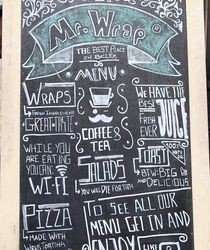 Mr. Wrap
THE BEST PLACE
MENU
WRAPS
GREAT
WE HAVE THE
BEST
EVER
JUICE
COFFEE
&
TEA
WHILE YOU
ARE EATING
YOU CAN:
WI-FI
TOAST
100%
BTW: BIG
AND
DELICIOUS
SALADS
YOU WILL DIE FOR THEM
PIZZA
MADE WITH
TO SEE ALL
OUR
MENU GET IN AND
ENJOY
LIKE